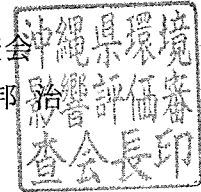 会
邦 治
沖縄県環境
影響評価審
査会長印